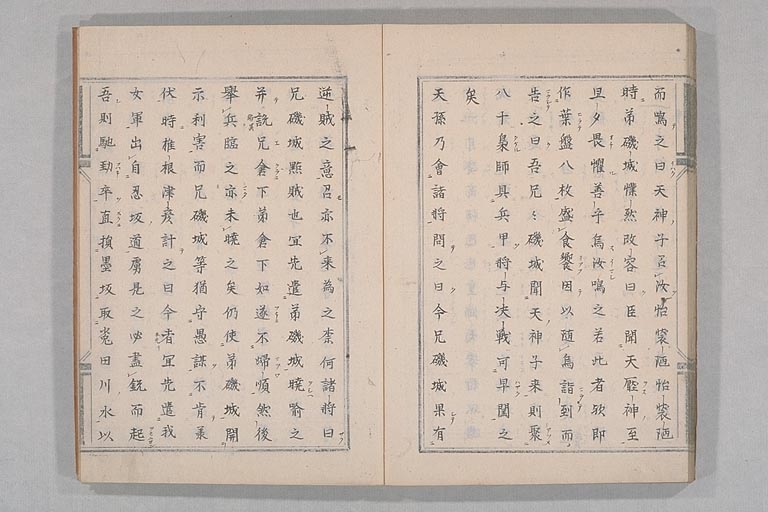 而鳴之曰天神子召汝怡奘過怡奘過
時弟磯城惵然改容曰臣聞天壓神至
旦夕畏懼善乎烏汝鳴之若此者歟即
作葉盤八枚盛食饗因以隨烏詣到而
告之曰吾兄々磯城聞天神子来則聚
八十梟帥具兵甲将与决戦可早圖之
矣
天孫乃會諸将問之曰今兄磯城果有
逆賊之意召亦不来為之柰何諸将曰
兄磯城黠賊也宜先遣弟磯城曉喩之
并説兄倉下弟倉下如遂不帰順然後
舉兵臨之亦未曉之矣仍使弟磯城開
示利害而兄磯城等猶守愚謀不肯羕
伏時椎根津彦計之曰今者宜先遣我
女軍出自忍坂道虜見之必盡鋭而起
吾則馳勁卒直指墨坂取菟田川水以